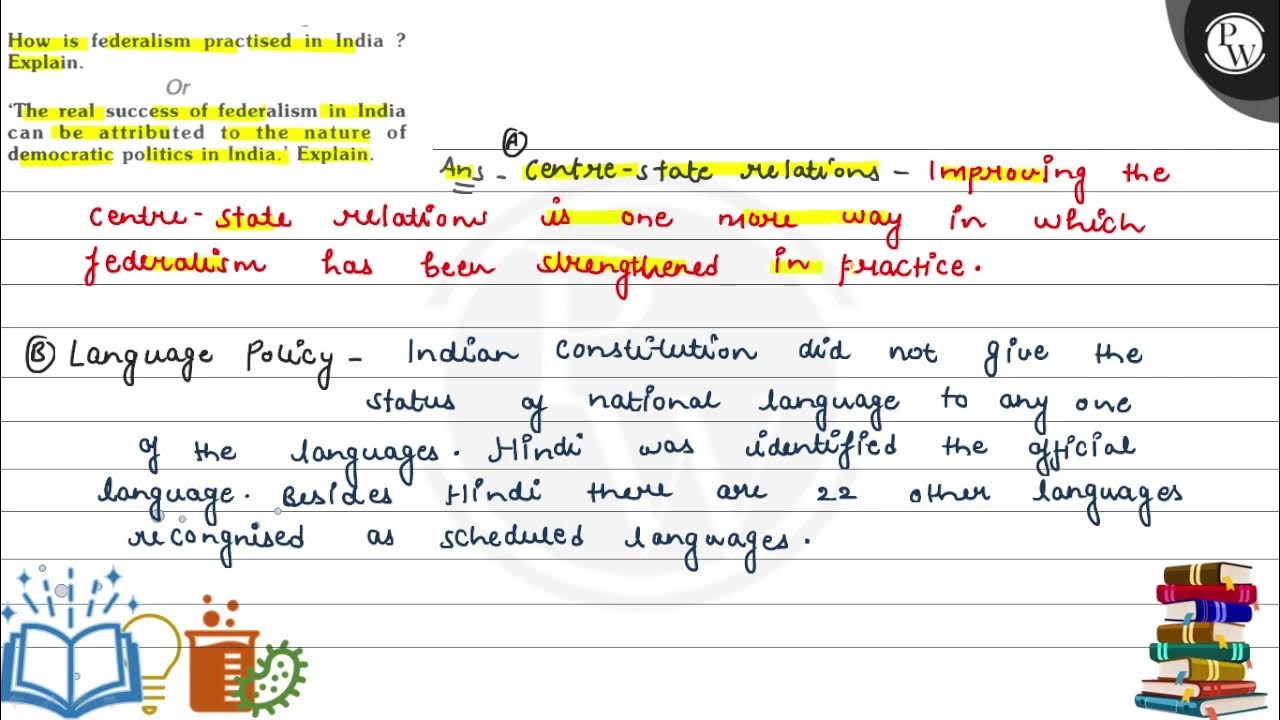 How is federalism practised in India ?
Explain.
Or
‘The real success of federalism in India
can be attributed to the nature of
democratic politics in India.’ Explain.
PW
Ⓐ
Ans - Centre-state relations - Improving the
centre-state relations is one more way in which
federalism has been strengthened in practice.
Ⓑ Language Policy - Indian constitution did not give the
status of national language to any one
of the languages. Hindi was identified the official
language. Besides Hindi there are 22 other languages
recongnised as scheduled languages.